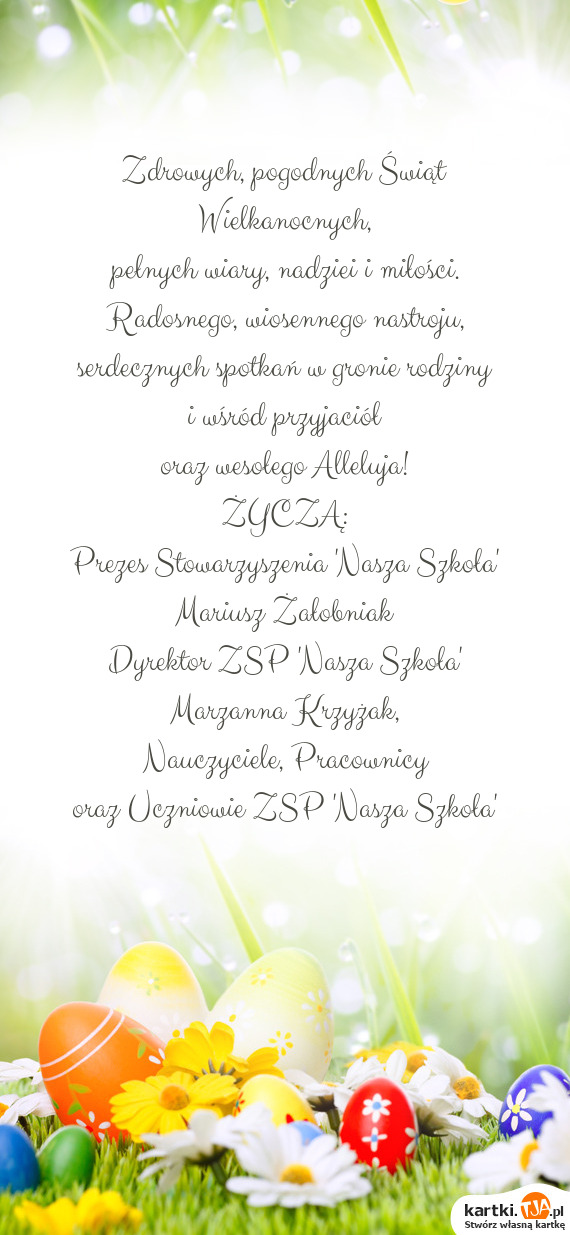 Zdrowych, pogodnych Świąt
Wielkanocnych,
pełnych wiary, nadziei i miłości.
Radosnego, wiosennego nastroju,
serdecznych spotkań w gronie rodziny
i wśród przyjaciół
oraz wesołego Alleluja!
ŻYCZĄ:
Prezes Stowarzyszenia 'Nasza Szkoła'
Mariusz Żałobniak
Dyrektor ZSP 'Nasza Szkoła'
Marzanna Krzyżak,
Nauczyciele, Pracownicy
oraz Uczniowie ZSP 'Nasza Szkoła'
kartki.TJA.pl
Stwórz własną kartkę